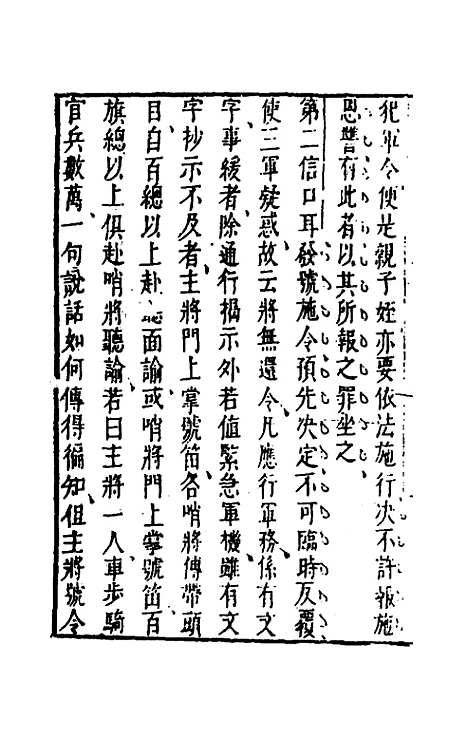 犯軍令便是親子姪亦要依法施行决不許報施
恩讐有此者以其所報之罪坐之
第二信口耳發號施令預先决定不可臨時反覆
使三軍疑惑故云將無還令凡應行軍務係有文
字事緩者除通行揭示外若值緊急軍機雖有文
字抄示不及者主將門上掌號笛各哨將傳帶頭
目自百總以上赴面諭或哨將門上掌號笛百
旗總以上俱赴哨將聽諭若曰主將一人車步騎
官兵數萬一句說話如何傳得徧知但主將號令